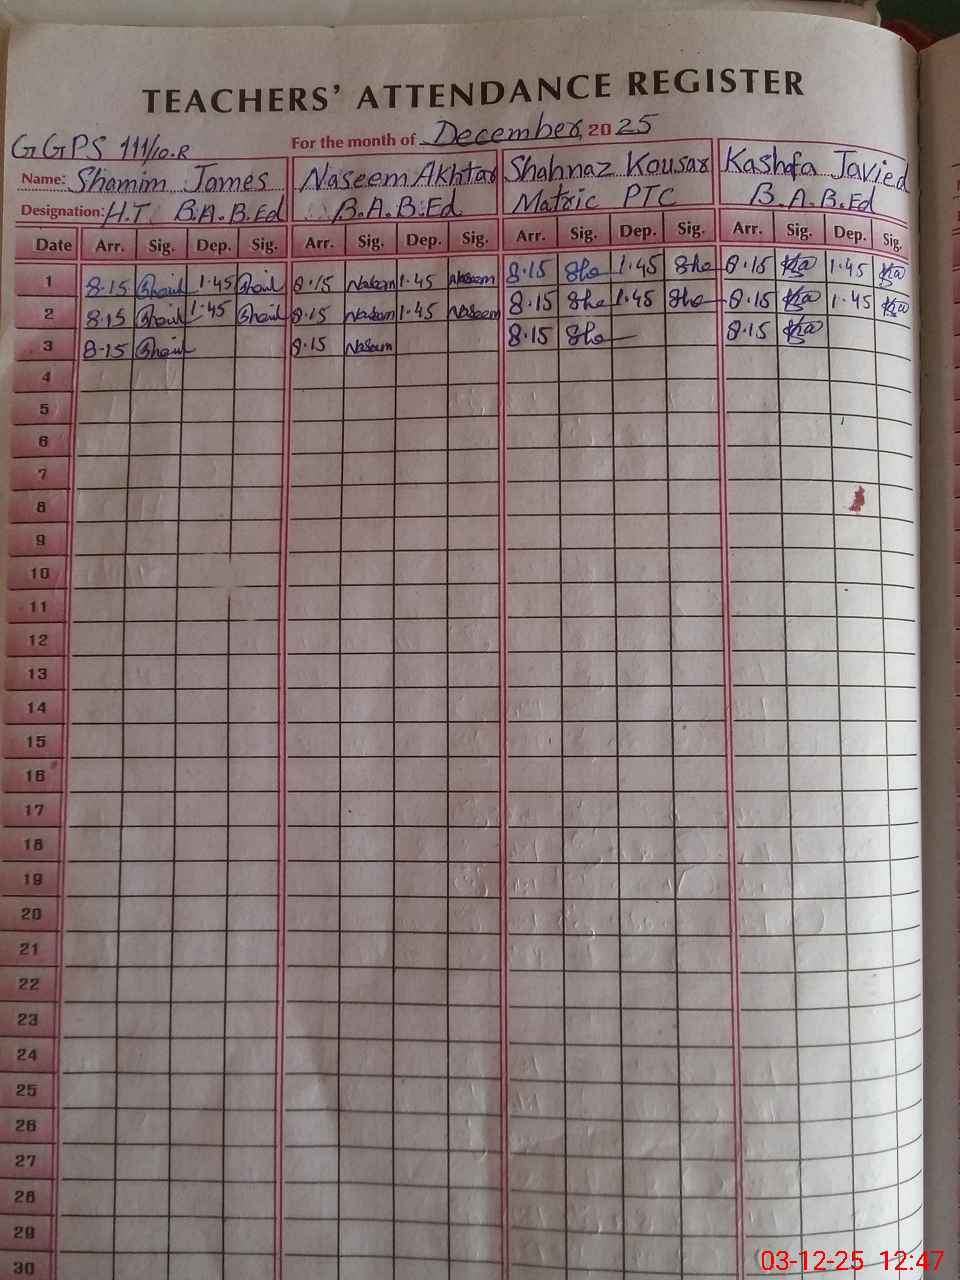 TEACHERS' ATTENDANCE REGISTER
GGPS 111/10.R For the month of December, 2025
Name: Shamim James Naseem Akhtar Shahnaz Kousar Kashifa Javied
Designation: H.T. B.A.B.Ed B.A.B.Ed Matric PTC B.A.B.Ed
Date Arr. Sig. Dep. Sig. Arr. Sig. Dep. Sig. Arr. Sig. Dep. Sig. Arr. Sig. Dep. Sig.
1 8.15 1.45 8.15 Naseem 1.45 Naseem 8.15 Sha 1.45 Sha 8.15 1.45
2 8.15 1.45 8.15 Naseem 1.45 Naseem 8.15 Sha 1.45 Sha 8.15 1.45
3 8.15 8.15 Naseem 8.15 Sha 8.15
4
5
6
7
8
9
10
11
12
13
14
15
16
17
18
19
20
21
22
23
24
25
26
27
28
29
30
03-12-25 12:47